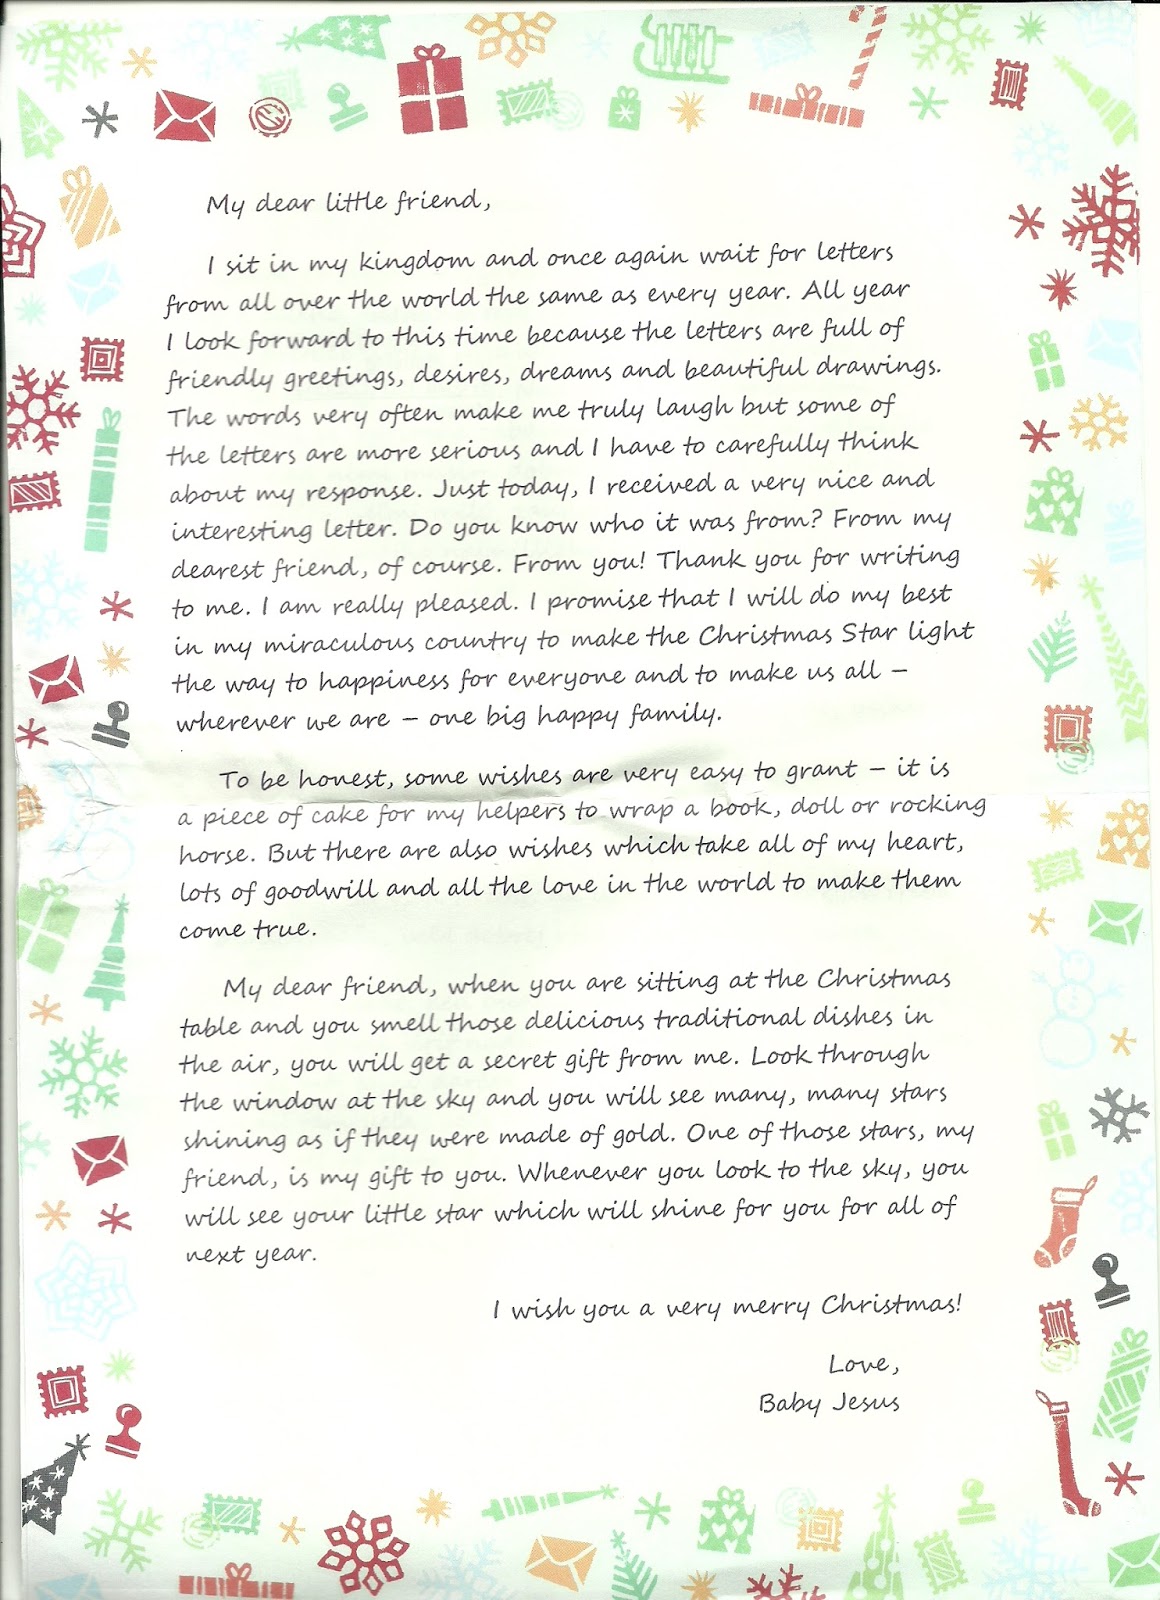 My dear little friend,
I sit in my kingdom and once again wait for letters
from all over the world the same as every year. All year
I look forward to this time because the letters are full of
friendly greetings, desires, dreams and beautiful drawings.
The words very often make me truly laugh but some of
the letters are more serious and I have to carefully think
about my response. Just today, I received a very nice and
interesting letter. Do you know who it was from? From my
dearest friend, of course. From you! Thank you for writing
to me. I am really pleased. I promise that I will do my best
in my miraculous country to make the Christmas Star light
the way to happiness for everyone and to make us all –
wherever we are – one big happy family.
To be honest, some wishes are very easy to grant – it is
a piece of cake for my helpers to wrap a book, doll or rocking
horse. But there are also wishes which take all of my heart,
lots of goodwill and all the love in the world to make them
come true.
My dear friend, when you are sitting at the Christmas
table and you smell those delicious traditional dishes in
the air, you will get a secret gift from me. Look through
the window at the sky and you will see many, many stars
shining as if they were made of gold. One of those stars, my
friend, is my gift to you. Whenever you look to the sky, you
will see your little star which will shine for you for all of
next year.
I wish you a very merry Christmas!
Love,
Baby Jesus